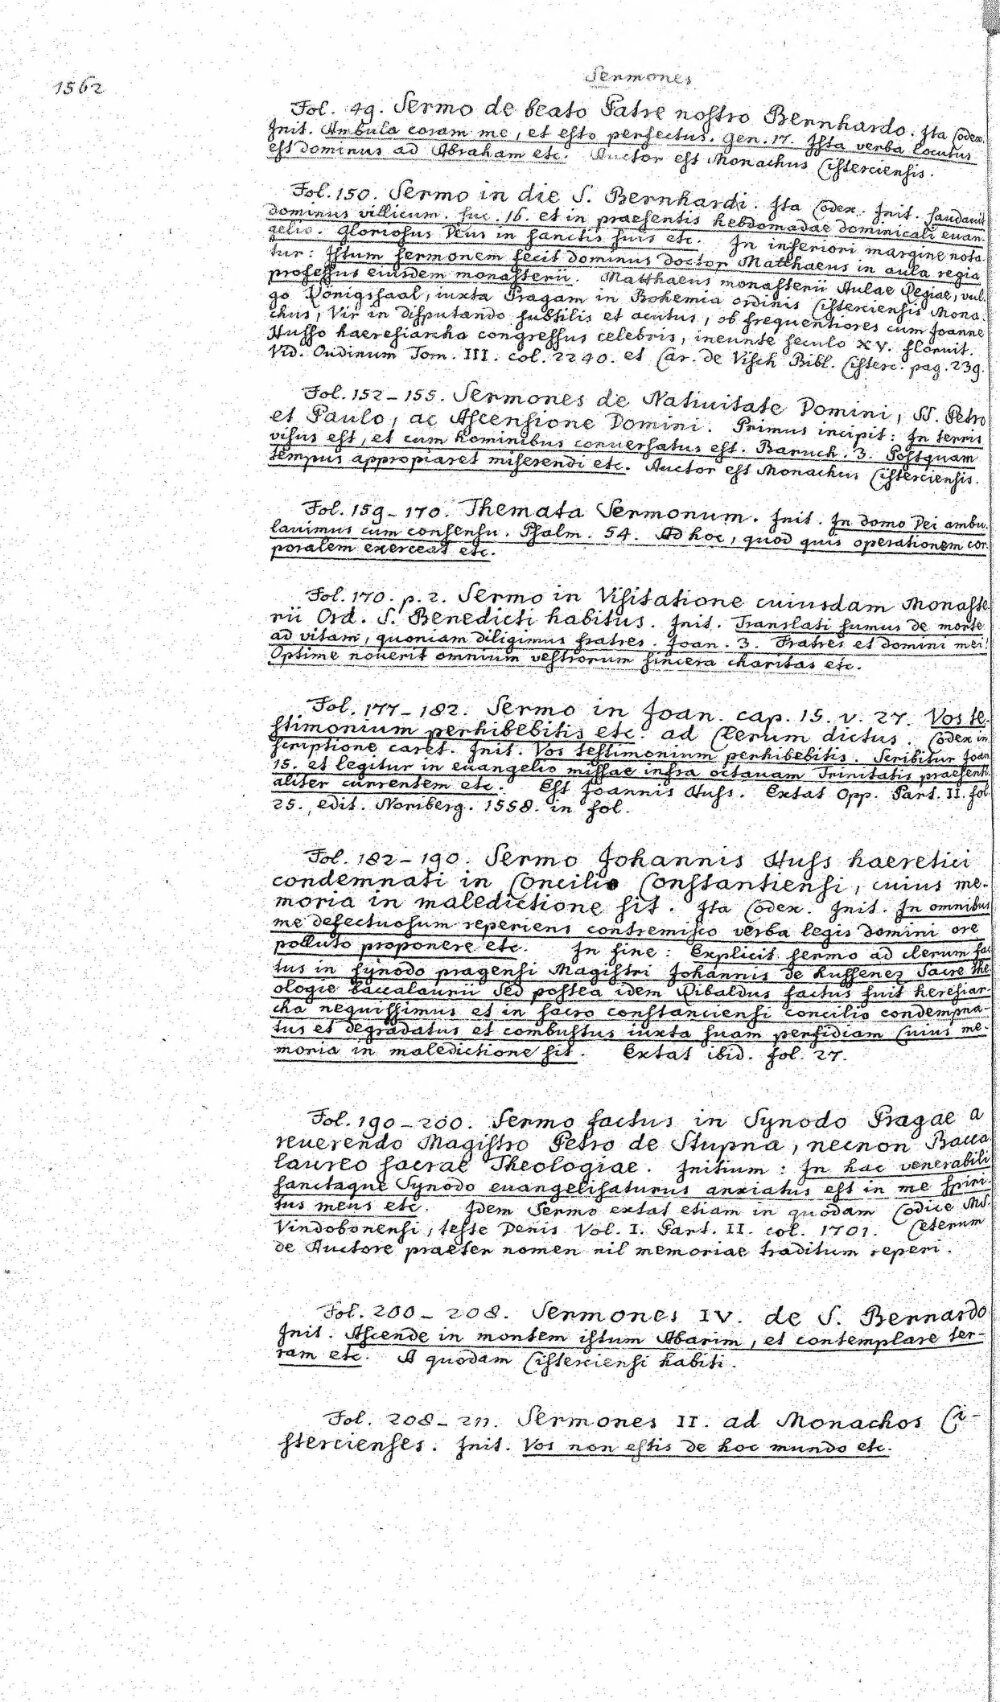 Sermones
1562
Fol. 49. Sermo de beato Patre nostro Bernhardo. Ita Codex.
Init. Ambula coram me, et esto perfectus. Gen. 17. Ista verba locutus
est dominus ad Abraham etc. Auctor est Monachus Cisterciensis.
Fol. 150. Sermo in die S. Bernhardi. Ita Codex. Init. Laudauit
dominus villicum. Luc. 16. et in praesentis hebdomadae dominicali euan-
gelio. Gloriosus Deus in sanctis suis etc. In inferiori margine nota-
tur: Istum sermonem fecit dominus doctor Matthaeus in aula regia
professus eiusdem monasterii. Matthaeus monasterii Aulae Regiae, vul-
go Königssaal, iuxta Pragam in Bohemia ordinis Cisterciensis Mona-
chus, Vir in disputando subtilis et acutus, ob frequentiores cum Joanne
Husso haeresiarcha congressus celebris, ineunte seculo XV. floruit.
Vid. Oudinum Tom. III. col. 2240. et Car. de Visch Bibl. Cisterc. pag. 239.
Fol. 152-155. Sermones de Natiuitate Domini, SS. Petro
et Paulo, ac Ascensione Domini. Primus incipit: In terris
visus est, et cum hominibus conuersatus est. Baruch. 3. Postquam
tempus appropiaret miserendi etc. Auctor est Monachus Cisterciensis.
Fol. 159-170. Themata Sermonum. Init. In domo Dei ambu-
lauimus cum consensu. Psalm. 54. Ad hoc, quod quis operationem cor-
poralem exerceat etc.
Fol. 170. p. 2. Sermo in Visitatione cuiusdam Monaste-
rii Ord. S. Benedicti habitus. Init. Translati sumus de morte
ad vitam, quoniam diligimus fratres. Joan. 3. Fratres et domini mei!
Optime nouerit omnium vestrorum sincera charitas etc.
Fol. 177-182. Sermo in Joan. cap. 15. v. 27. Vos te-
stimonium perhibebitis etc. ad Clerum dictus. Codex in-
scriptione caret. Init. Vos testimonium perhibebitis. Scribitur Joan.
15. et legitur in euangelio missae infra octauam Trinitatis praesenti-
aliter currentem etc. Est Joannis Huss. Extat Opp. Part. II. fol.
25., edit. Noriberg. 1558. in fol.
Fol. 182-190. Sermo Johannis Huss haeretici
condemnati in Concilio Constantiensi, cuius me-
moria in maledictione sit. Ita Codex. Init. In omnibus
me defectuosum reperiens contremisco verba legis domini ore
polluto proponere etc. In fine: Explicit sermo ad clerum fac-
tus in synodo pragensi Magistri Johannis de hussenez Sacre the-
ologie baccalaurii Sed postea idem Ribaldus factus fuit heresiar-
cha nequissimus et in sacro constanciensi concilio condempna-
tus et degradatus et combustus iuxta suam perfidiam Cuius me-
moria in maledictione sit. Extat ibid. fol. 27.
Fol. 190-200. Sermo factus in Synodo Pragae a
reuerendo Magistro Petro de Stupna, necnon Bacca-
laureo sacrae Theologiae. Initium: In hac venerabili
sanctaque Synodo euangelisaturus anxiatus est in me spiri-
tus meus etc. Idem Sermo extat etiam in quodam Codice Ms.
Vindobonensi, teste Denis Vol. I. Part. II. col. 1701. Ceterum
de Auctore praeter nomen nil memoriae traditum reperi.
Fol. 200-208. Sermones IV. de S. Bernardo
Init. Ascende in montem istum Abarim, et contemplare ter-
ram etc. A quodam Cisterciensi habiti.
Fol. 208-211. Sermones II. ad Monachos Ci-
stercienses. Init. Vos non estis de hoc mundo etc.